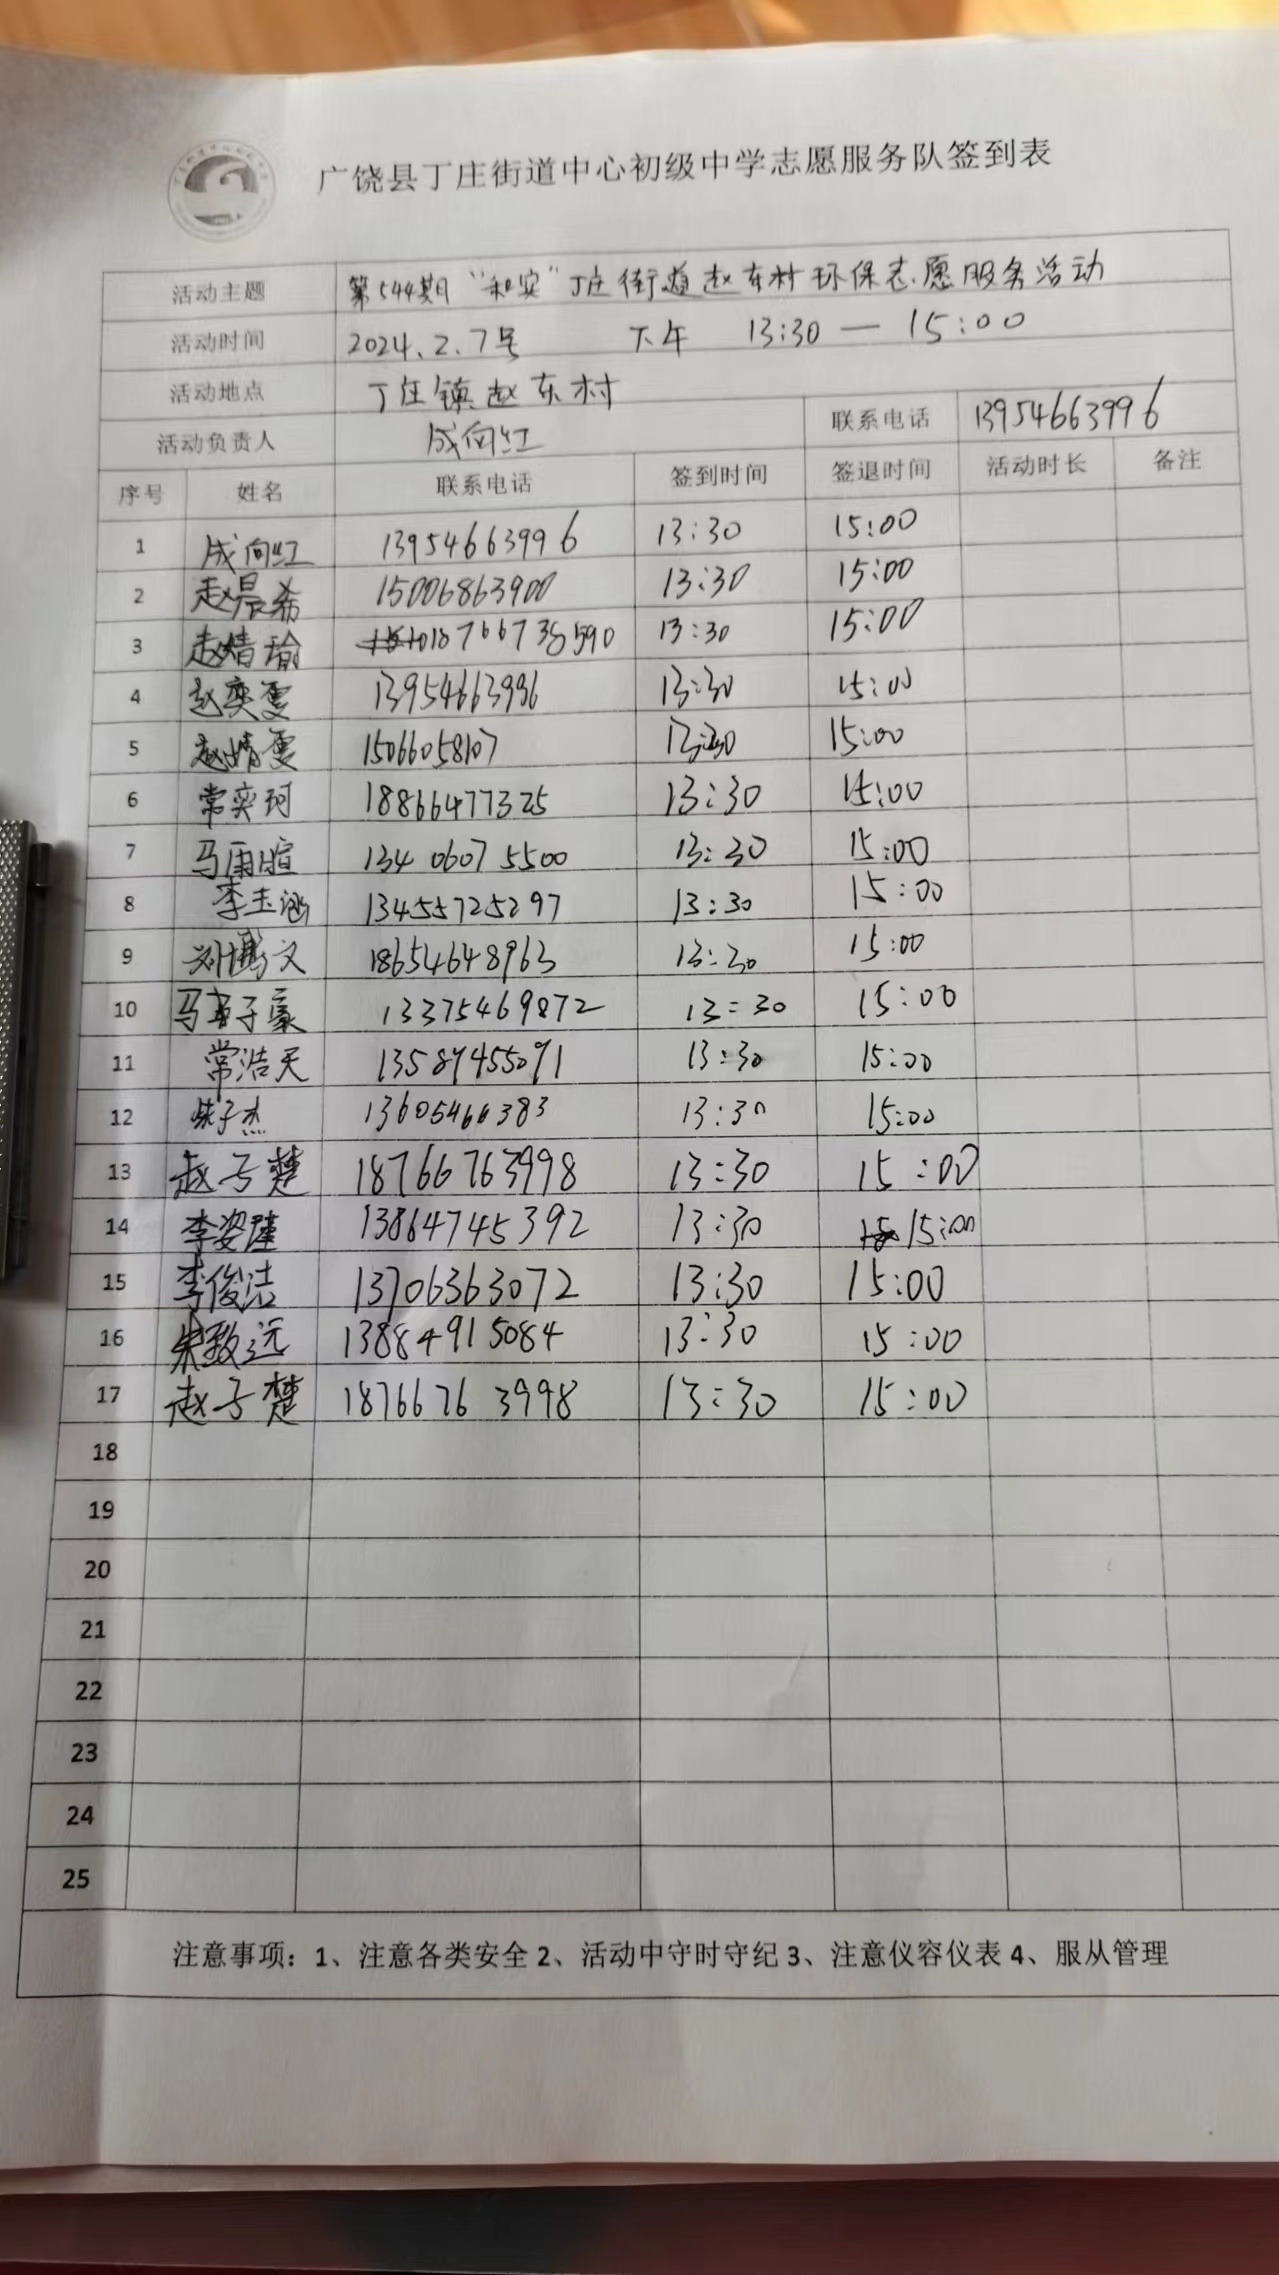 广饶县丁庄街道中心初级中学志愿服务队签到表
活动主题 第544期“和安”丁庄街道赵东村环保志愿服务活动
活动时间 2024.2.7号 下午 13:30 — 15:00
活动地点 丁庄镇赵东村
活动负责人 成向红 联系电话 13954663996
序号 姓名 联系电话 签到时间 签退时间 活动时长 备注
1 成向红 13954663996 13:30 15:00
2 赵晨希 15006863900 13:30 15:00
3 赵婧瑜 18766738590 13:30 15:00
4 赵奕雯 13954663996 13:30 15:00
5 赵婧雯 15066058107 13:30 15:00
6 常奕珂 18866477325 13:30 15:00
7 马雨暄 134 0607 5500 13:30 15:00
8 李玉涵 13455725297 13:30 15:00
9 刘博文 18654648963 13:30 15:00
10 马子豪 13375469872 13:30 15:00
11 常浩天 13589455091 13:30 15:00
12 子杰 13605466383 13:30 15:00
13 赵子楚 18766763998 13:30 15:00
14 李姿瑾 13864745392 13:30 15:00
15 李俊洁 13706363072 13:30 15:00
16 朱致远 13884915084 13:30 15:00
17 赵子楚 18766763998 13:30 15:00
18
19
20
21
22
23
24
25
注意事项：1、注意各类安全 2、活动中守时守纪 3、注意仪容仪表 4、服从管理